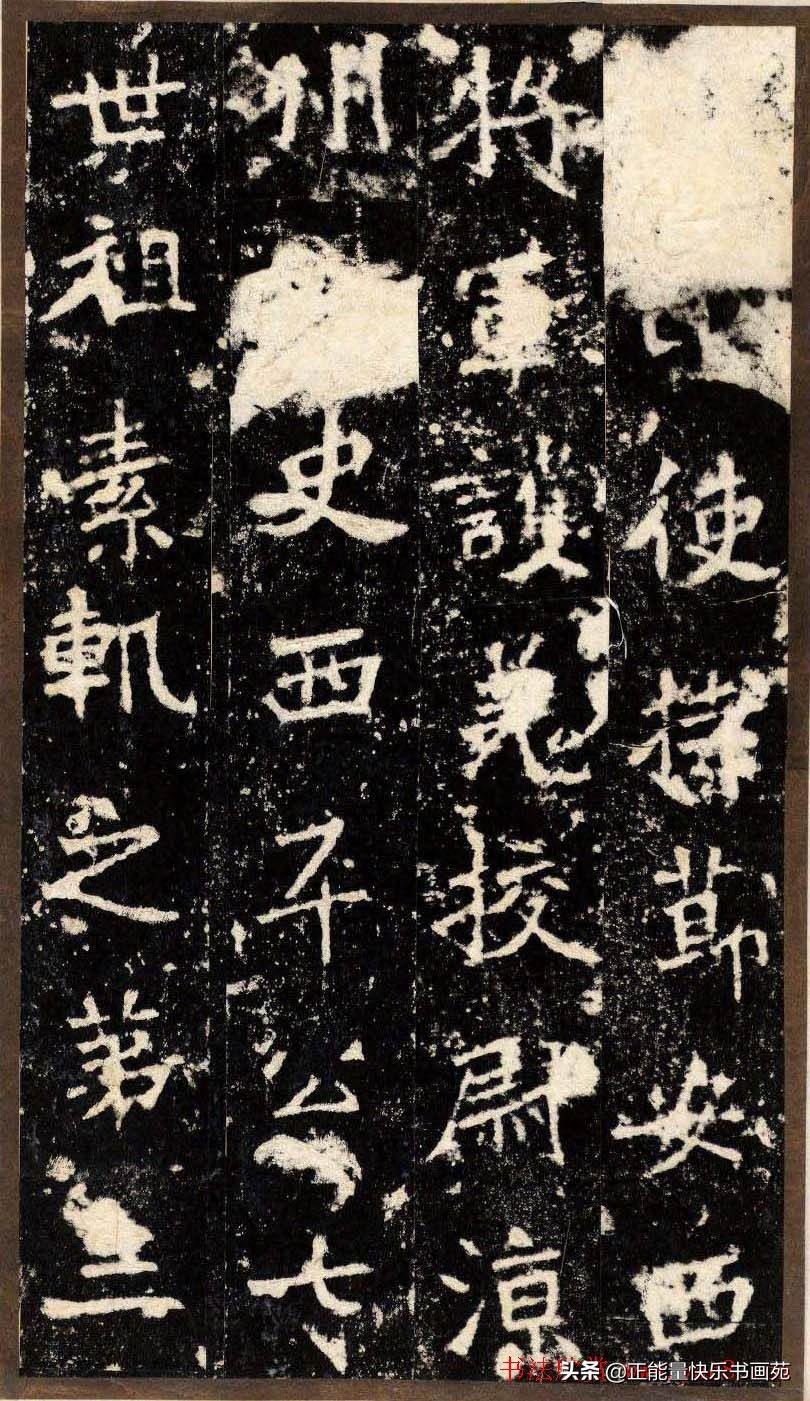 使持莭安西
将軍護羌校尉涼
州史西平公七
世祖素軌之苐三
书法
头条 @正能量快乐书画苑